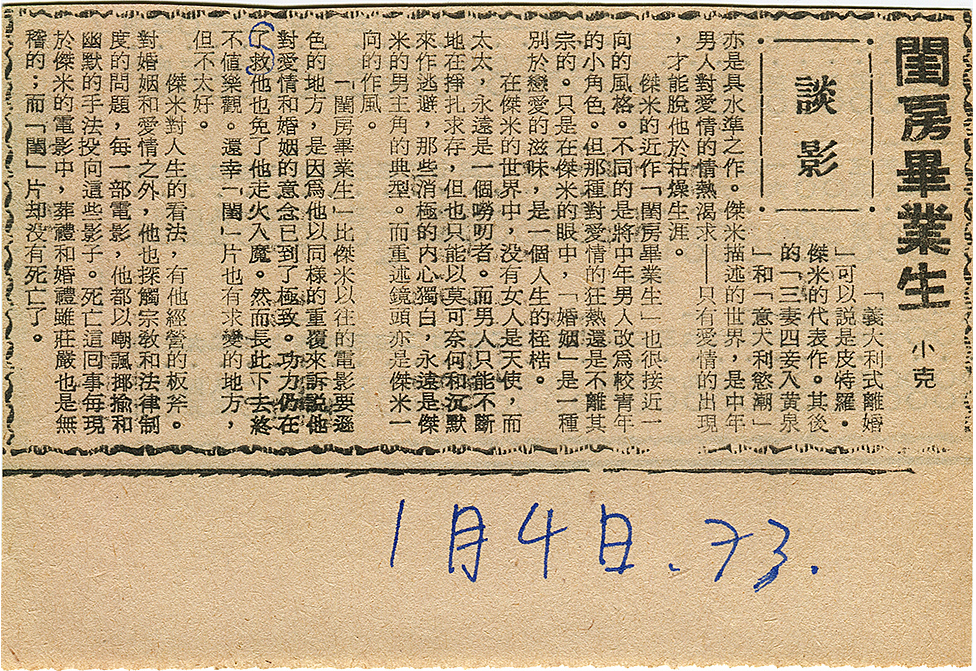 閨房畢業生
小克
談影
「義大利式離婚
」可以說是皮特羅・
傑米的代表作。其後
的「三妻四妾入黃泉
」和「意大利慾潮」
亦是具水準之作。傑米描述的世界,是中年
男人對愛情的情熱渴求——只有愛情的出現
,才能脫他於枯燥生涯。
傑米的近作「閨房畢業生」也很接近一
向的風格。不同的是將中年男人改爲較青年
的小角色。但那種對愛情的狂熱還是不離其
宗的。只是在傑米的眼中,「婚姻」是一種
別於戀愛的滋味,是一個人生的桎梏。
在傑米的世界中,没有女人是天使,而
太太,永遠是一個嘮叨者。而男人只能不斷
地在掙扎求存,但也只能以莫可奈何和沉默
來作逃避,那些消極的內心獨白,永遠是傑
米的男主角的典型。而重述鏡頭亦是傑米一
向的作風。
「閨房畢業生」比傑米以往的電影要遜
色的地方,是因爲他以同樣的重覆來訴說他
對愛情和婚姻的意念已到了極致。功力仍在
了救他也免了他走火入魔。然而長此下去終
不値樂觀。還幸「閨」片也有求變的地方,
但不太好。
傑米對人生的看法,有他經營的板斧。
對婚姻和愛情之外,他也探觸宗敎和法律制
度的問題,每一部電影,他都以嘲諷揶揄和
幽默的手法投向這些影子。死亡這回事每現
於傑米的電影中,葬禮和婚禮雖莊嚴也是無
稽的;而「閨」片却没有死亡了。
1月4日.73.